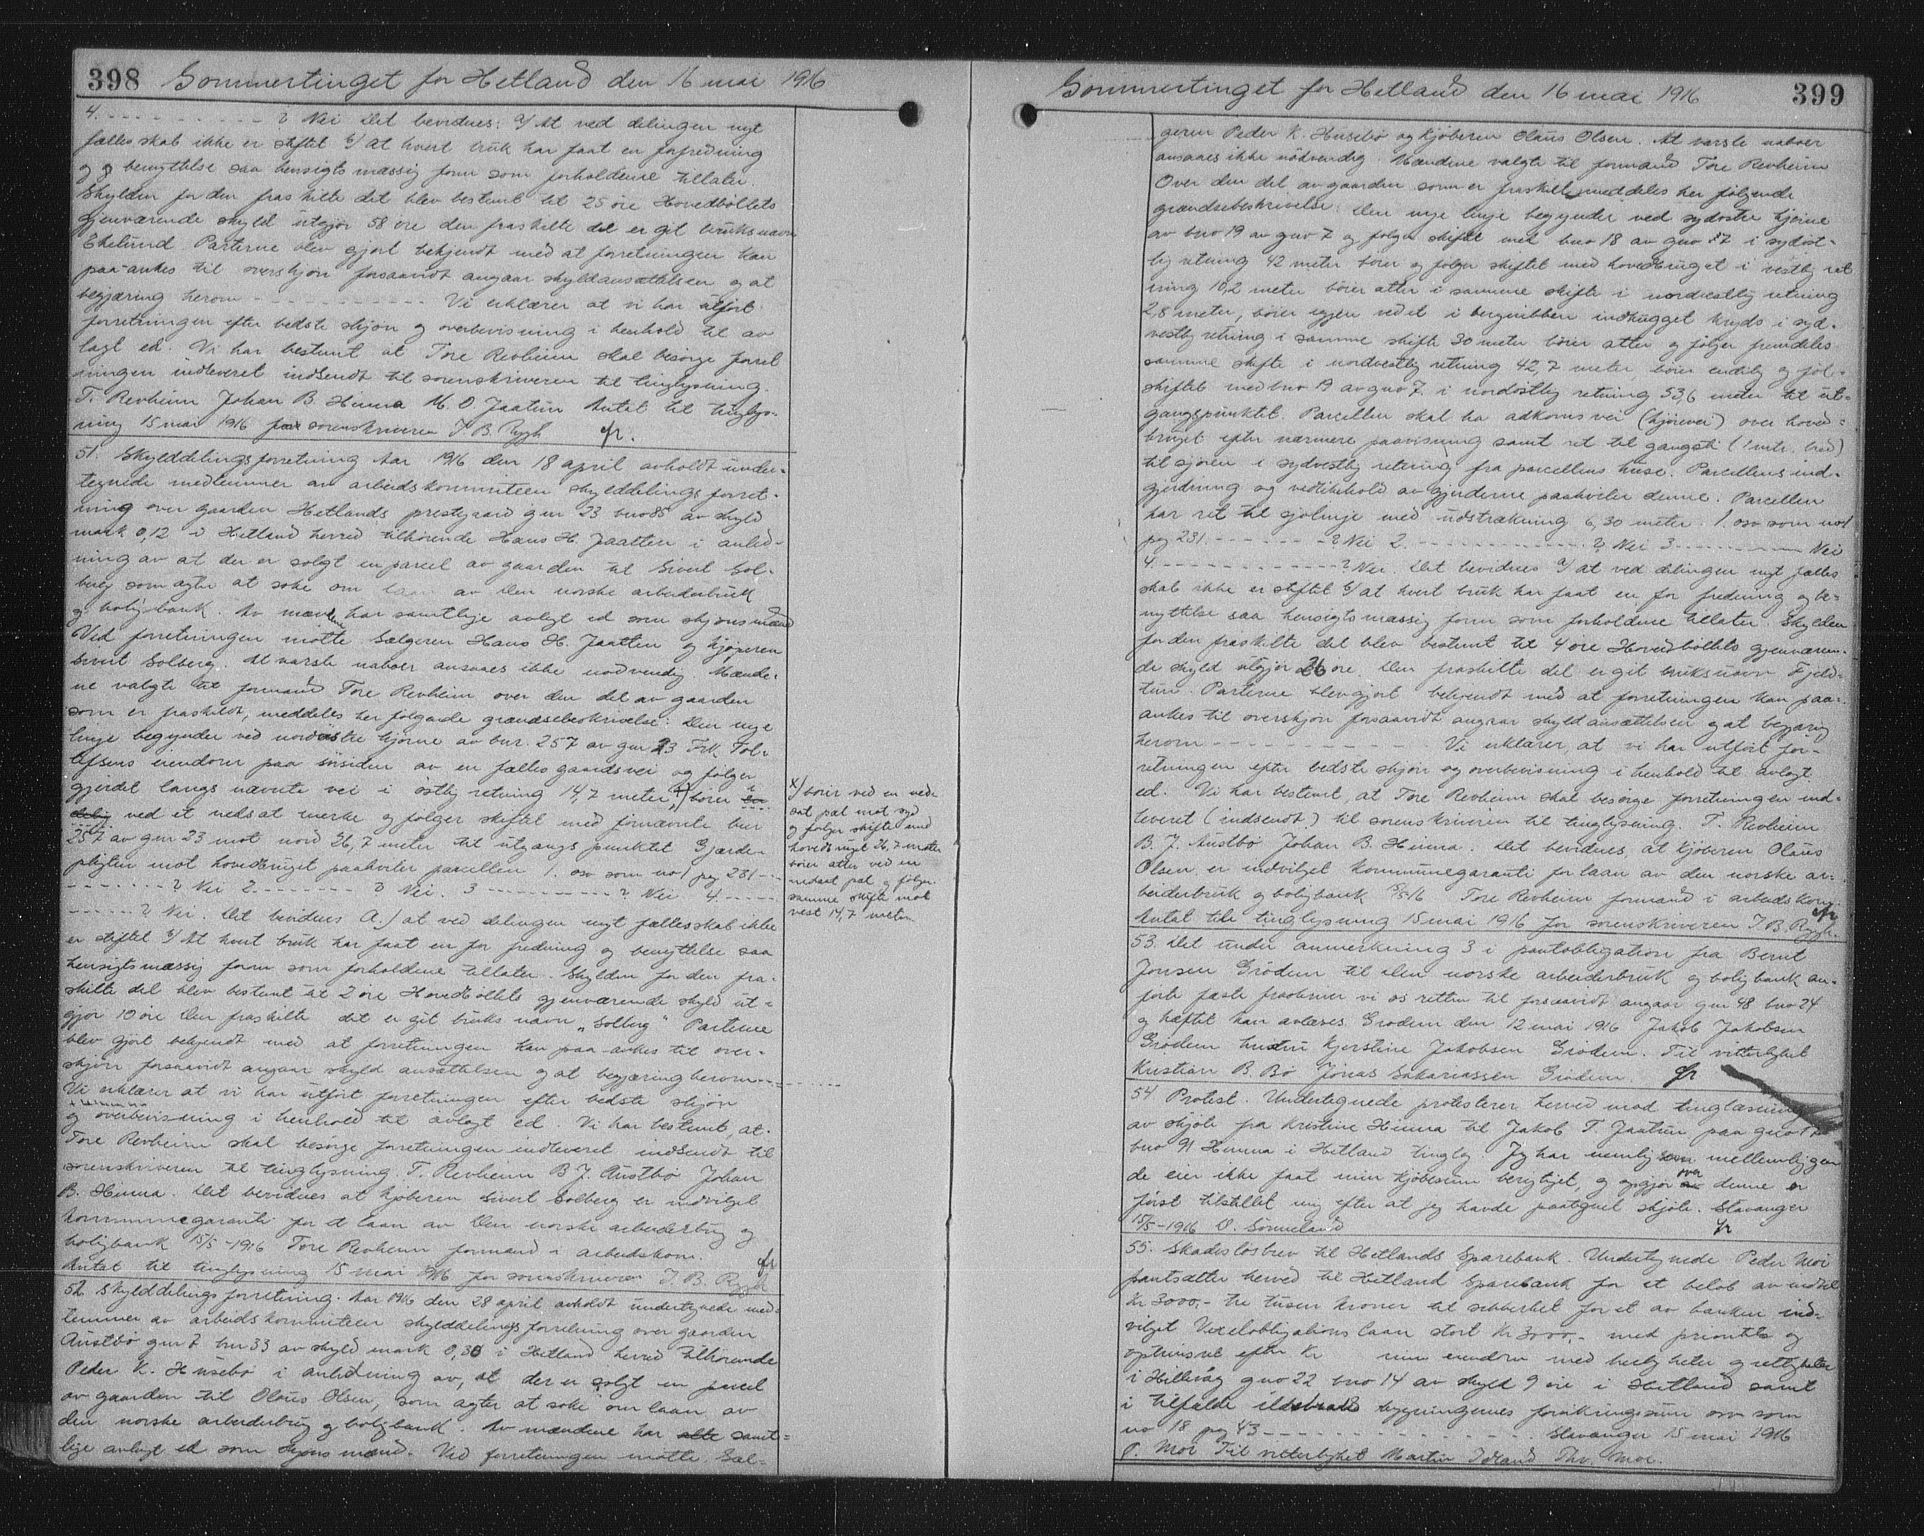 398 Sommertinget for Hetland den 16 mai 1916
4. - - - - - - - - - - ? Nei Det bevidnes: a/ At ved delingen nyt
fællesskab ikke er stiftet b/ at hvert bruk har faat en for fredning
og benyttelse saa hensigtsmæssig form som forholdene tillater.
Skylden for den fraskilte del blev bestemt til 25 øre Hovedbøllets
gjenværende skyld utgjør 58 øre den fraskilte del er git bruksnavn
Ekelund. Parterne blev gjort bekjendt med at forretningen kan
paa-ankes til overskjøn forsaavidt angaar skyldansættelsen og at
begjæring herom - - - - - - - - - - Vi erklærer at vi har utført
forretningen efter bedste skjøn og overbevisning i henhold til av
lagt ed. Vi har bestemt at Tore Revheim skal besørge forret
ningen indleveret indsendt til sorenskriveren til tinglysning.
T. Revheim Johan B. Hinna M. O. Jaatun Antat til tinglys-
ning 15 mai 1916 for sorenskriveren J. B. Rygh fr.
51. Skylddelingsforretning Aar 1916 den 18 april avholdt under-
tegnede medlemmer av arbeidskommiteen skylddelingsforret-
ning over gaarden Hetlands prestgaard gnr 23 bno 85 av skyld
mark 0,12 i Hetland herred tilhørende Hans H. Jaatten i anled-
ning av at der er solgt en parcel av gaarden til Sivert Sol-
berg som agter at søke om laan av Den norske arbeiderbruk
og boligbank. Av mændene har samtlige avlagt ed som skjønsmænd
Ved forretningen møtte Sælgeren Hans H. Jaatten og kjøperen
Sivert Solberg. At varsle naboer ansaaes ikke nødvendig. Mænde-
ne valgte til formand Tore Revheim over den del av gaarden
som er fraskildt, meddeles her følgende grændsebeskrivelse: Den nye
linje begynder ved nordøstre hjørne av bnr. 257 av gnr 23 Frk. Tol-
lefsens eiendom paa sørsiden av en fælles gaardsvei og følger
gjerdet langs nævnte vei i østlig retning 14,7 meter, x) bøier en
delig ved et nedsat merke og følger skiftet med førnævnte bnr
257 av gnr 23 mot nord 26,7 meter til utgangspunktet Gjærde-
pligten mot hovedbruget paahviler parcellen 1. osv som no 1 pag 231 - -
- - - - - - - ? Nei 2. - - - - - - - ? Nei. 3 - - - - - - - - - ? Nei 4. - - - - -
- - - - - ? Nei. Det bevidnes A.) at ved delingen nyt fællesskab ikke
er stiftet b/ At hvert bruk har faat en for fredning og benyttelse saa
hensigtsmæssig form som forholdene tillater. Skylden for den fra-
skilte del blev bestemt til 2 øre Hovedbøllets gjenværende skyld ut-
gjør 10 øre Den fraskilte del er git bruks navn „Solberg“ Parterne
blev gjort bekjendt med at forretningen kan paa-ankes til over-
skjøn forsaavidt angaar skyld ansættelsen og at begjæring herom - - - - - - - -
Vi erklærer at vi har utført forretningen efter bedste skjøn
og overbevisning i henhold til avlagt ed. Vi har bestemt, at
Tore Revheim skal besørge forretningen indleveret indsendt til
sorenskriveren til tinglysning. T. Revheim B J. Austbø Johan
B. Hinna. Det bevidnes at kjøberen Sivert Solberg er indvilget
kommunegaranti for et laan av Den norske arbeiderbrug og
boligbank 15/5 - 1916 Tore Revheim formand i arbeidskom.
Antat til tinglysning 15 mai 1916 for sorenskriveren J. B. Rygh fr
52. Skylddelingsforretning. Aar 1916 den 28 april avholdt undertegnede med-
lemmer av arbeidskommiteen skylddelingsforretning over gaarden
Austbø gnr 7 bnr 33 av skyld mark 0,30 i Hetland herred tilhørende
Peder K. Husebø i anledning av, at der er solgt en parcel
av gaarden til Olaus Olsen, som agter at søke om laan av
den norske arbeiderbrug og boligbank. Av mændene har alle samt-
lige avlagt ed som skjøns mænd. Ved forretningen møtte Sæl-
x) bøier ved en ned-
sat pæl mot syd
og følger skifte med
hovedbruget 26,7 meter
bøier atter ved en
nedsat pæl og følger
samme skifte mot
vest 14,7 meter
Sommertinget for Hetland den 16 mai 1916 399
geren Peder K. Husebø og kjøberen Olaus Olsen. At varsle naboer
ansaaes ikke nødvendig. Mændene valgte til formand Tore Revheim
Over den del av gaarden som er fraskilt meddeles her følgende
grændsebeskrivelse: Den nye linje begynder ved sydøstre hjørne
av bno 19 av gno 7 og følger skiftet med bno 18 av gno 7 i sydøst-
lig retning 42 meter bøier og følger skiftet med hovedbruget i vestlig ret
ning 10,2 meter bøier atter i samme skifte i nordvestlig retning
2,8 meter, bøier igjen ved et i bergnibben indhugget kryds i syd-
vestlig retning i samme skifte 30 meter bøier atter og følger fremdeles
samme skifte i nordvestlig retning 42,7 meter bøier endelig og føl-
skiftet med bno 19 av gno 7 i nordøstlig retning 53,6 meter til ut-
gangspunktet. Parcellen skal ha adkomsvei (kjørevei) over hoved-
bruget efter nærmere paavisning samt ret til gangsti (1 mtr. bred)
til sjøen i sydvestlig retning fra parcellens huse. Parcellens ind-
gjerdning og vedlikehold av gjerderne paahviler denne. Parcellen
har ret til sjølinje med udstrækning 6,30 meter. 1. osv som no 1
pag 231. - - - - - - - - ? Nei 2. - - - - - - - - - - - - ? Nei 3 - - - - - - - - Nei
4 - - - - - - - - - - - - ? Nei. Det bevidnes a/ at ved delingen nyt fælles
skab ikke er stiftet b/ at hvert bruk har faat en for fredning og be-
nyttelse saa hensigtsmæssig form som forholdene tillater. Skylden
for den fraskilte del blev bestemt til 4 øre Hovedbøllets gjenværen-
de skyld utgjør 26 øre Den fraskilte del er git bruksnavn Fjeld-
tun. Parterne blev gjort bekjendt med at forretningen kan paa-
ankes til overskjøn forsaavidt angaar skyldansættelsen og at begjæring
herom - - - - - - - - - - - - - - Vi erklærer, at vi har utført for-
retningen efter bedste skjøn og overbevisning i henhold til avlagt
ed. Vi har bestemt, at Tore Revheim skal besørge forretningen ind-
leveret (indsendt) til sorenskriveren til tinglysning. T. Revheim
B. J. Austbø Johan B. Hinna. Det bevidnes, at kjøberen Olaus
Olsen er indvilget kommunegaranti for laan av den norske ar-
beiderbruk og boligbank 15/5 16 Tore Revheim formand i arbeidskom.
Antat til tinglysning 15 mai 1916 for sorenskriveren J. B. Rygh. fr
53. Det under anmerkning 3 i pantobligation fra Bernt
Jonsen Grødem til Den norske arbeiderbruk og boligbank an-
førte fæste frasiner vi os retten til forsaavidt angaar gnr 48 bno 24
og hæftet kan avlæses. Grødem den 12 mai 1916 Jakob Jakobsen
Grødem hustru Kjerstine Jakobsen Grødem. Til vitterlighet
Kristian B. Bø Jonas Sakariassen Grødem. fr
54 Protest. Undertegnede protesterer herved mod tinglæsning
av skjøte fra Kristine Hinna til Jakob T. Jaatun paa gno 17
bno 91 Hinna i Hetland tinglag. Jeg har nemlig som mellemliggen
de eier ikke faat min kjøbesum berigtiget, og opgjør over denne er
først tilstillet mig efter at jeg havde paategnet skjøte. Stavanger
15/5 - 1916 O. Sømmeland fr
55. Skadesløsbrev til Hetlands Sparebank. Undertegnede Peder Moi
pantsætter herved til Hetland Sparebank for et beløb av indtil
Kr 3000,- tre tusen kroner til sikkerhet for et av banken ind-
vilget Vexelobligationslaan stort Kr 3000,- med prioritet og
optrinsret efter Kr min eiendom med herligheter og rettigheter
i Hillevåg gno 22 bno 14 av skyld 9 øre i Hetland samt
i tilfælde ildebrand bygningernes forsikringssum osv som
no 18 pag 43 - - - - - - - - - - - - - - - Stavanger 15 mai 1916
P. Moi Til vitterlighet Martin Idland Thv. Moi.